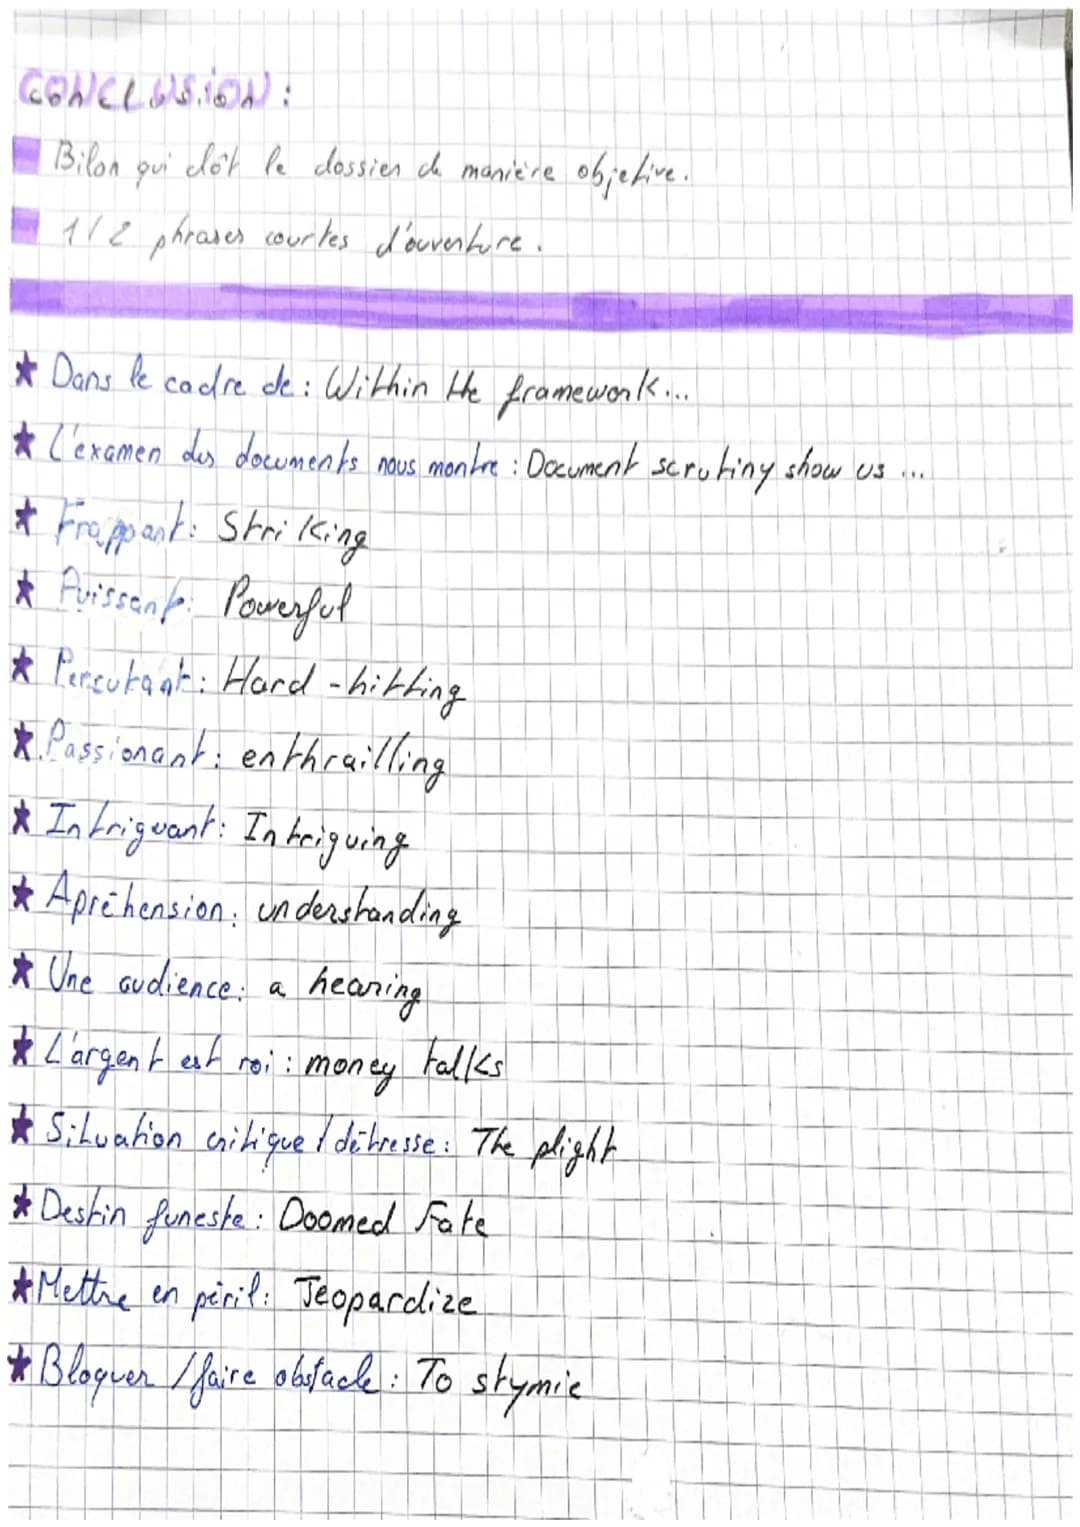 CONCLUSION :
Bilan qui clôt le dossier de manière objetive.
1/2 phrases courtes d'ouverture.
★ Dans le cadre de : Within the framework...
★ L'examen des documents nous montre : Document scrutiny show us ...
★ Frappant : Striking
★ Puissant : Powerful
★ Percutant : Hard-hitting
★ Passionant : enthrailling
★ Intriguant : Intriguing
★ Apréhension : understanding
★ Une audience : a hearing
★ L'argent est roi : money talks
★ Situation critique / détresse : The plight
★ Destin funeste : Doomed Fate
★ Mettre en péril : Jeopardize
★ Bloquer / faire obstacle : To stymie